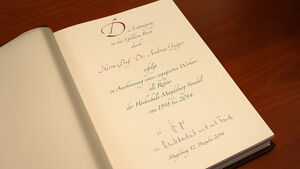 Die Eintragung
in das Goldene Buch
durch
Herrn Prof. Dr. Andreas Geiger
erfolgte
in Anerkennung seines engagierten Wirkens
als Rektor
der Hochschule Magdeburg-Stendal
von 1998 bis 2014
in Dankbarkeit und mit Freude
Magdeburg, 12. Dezember 2014